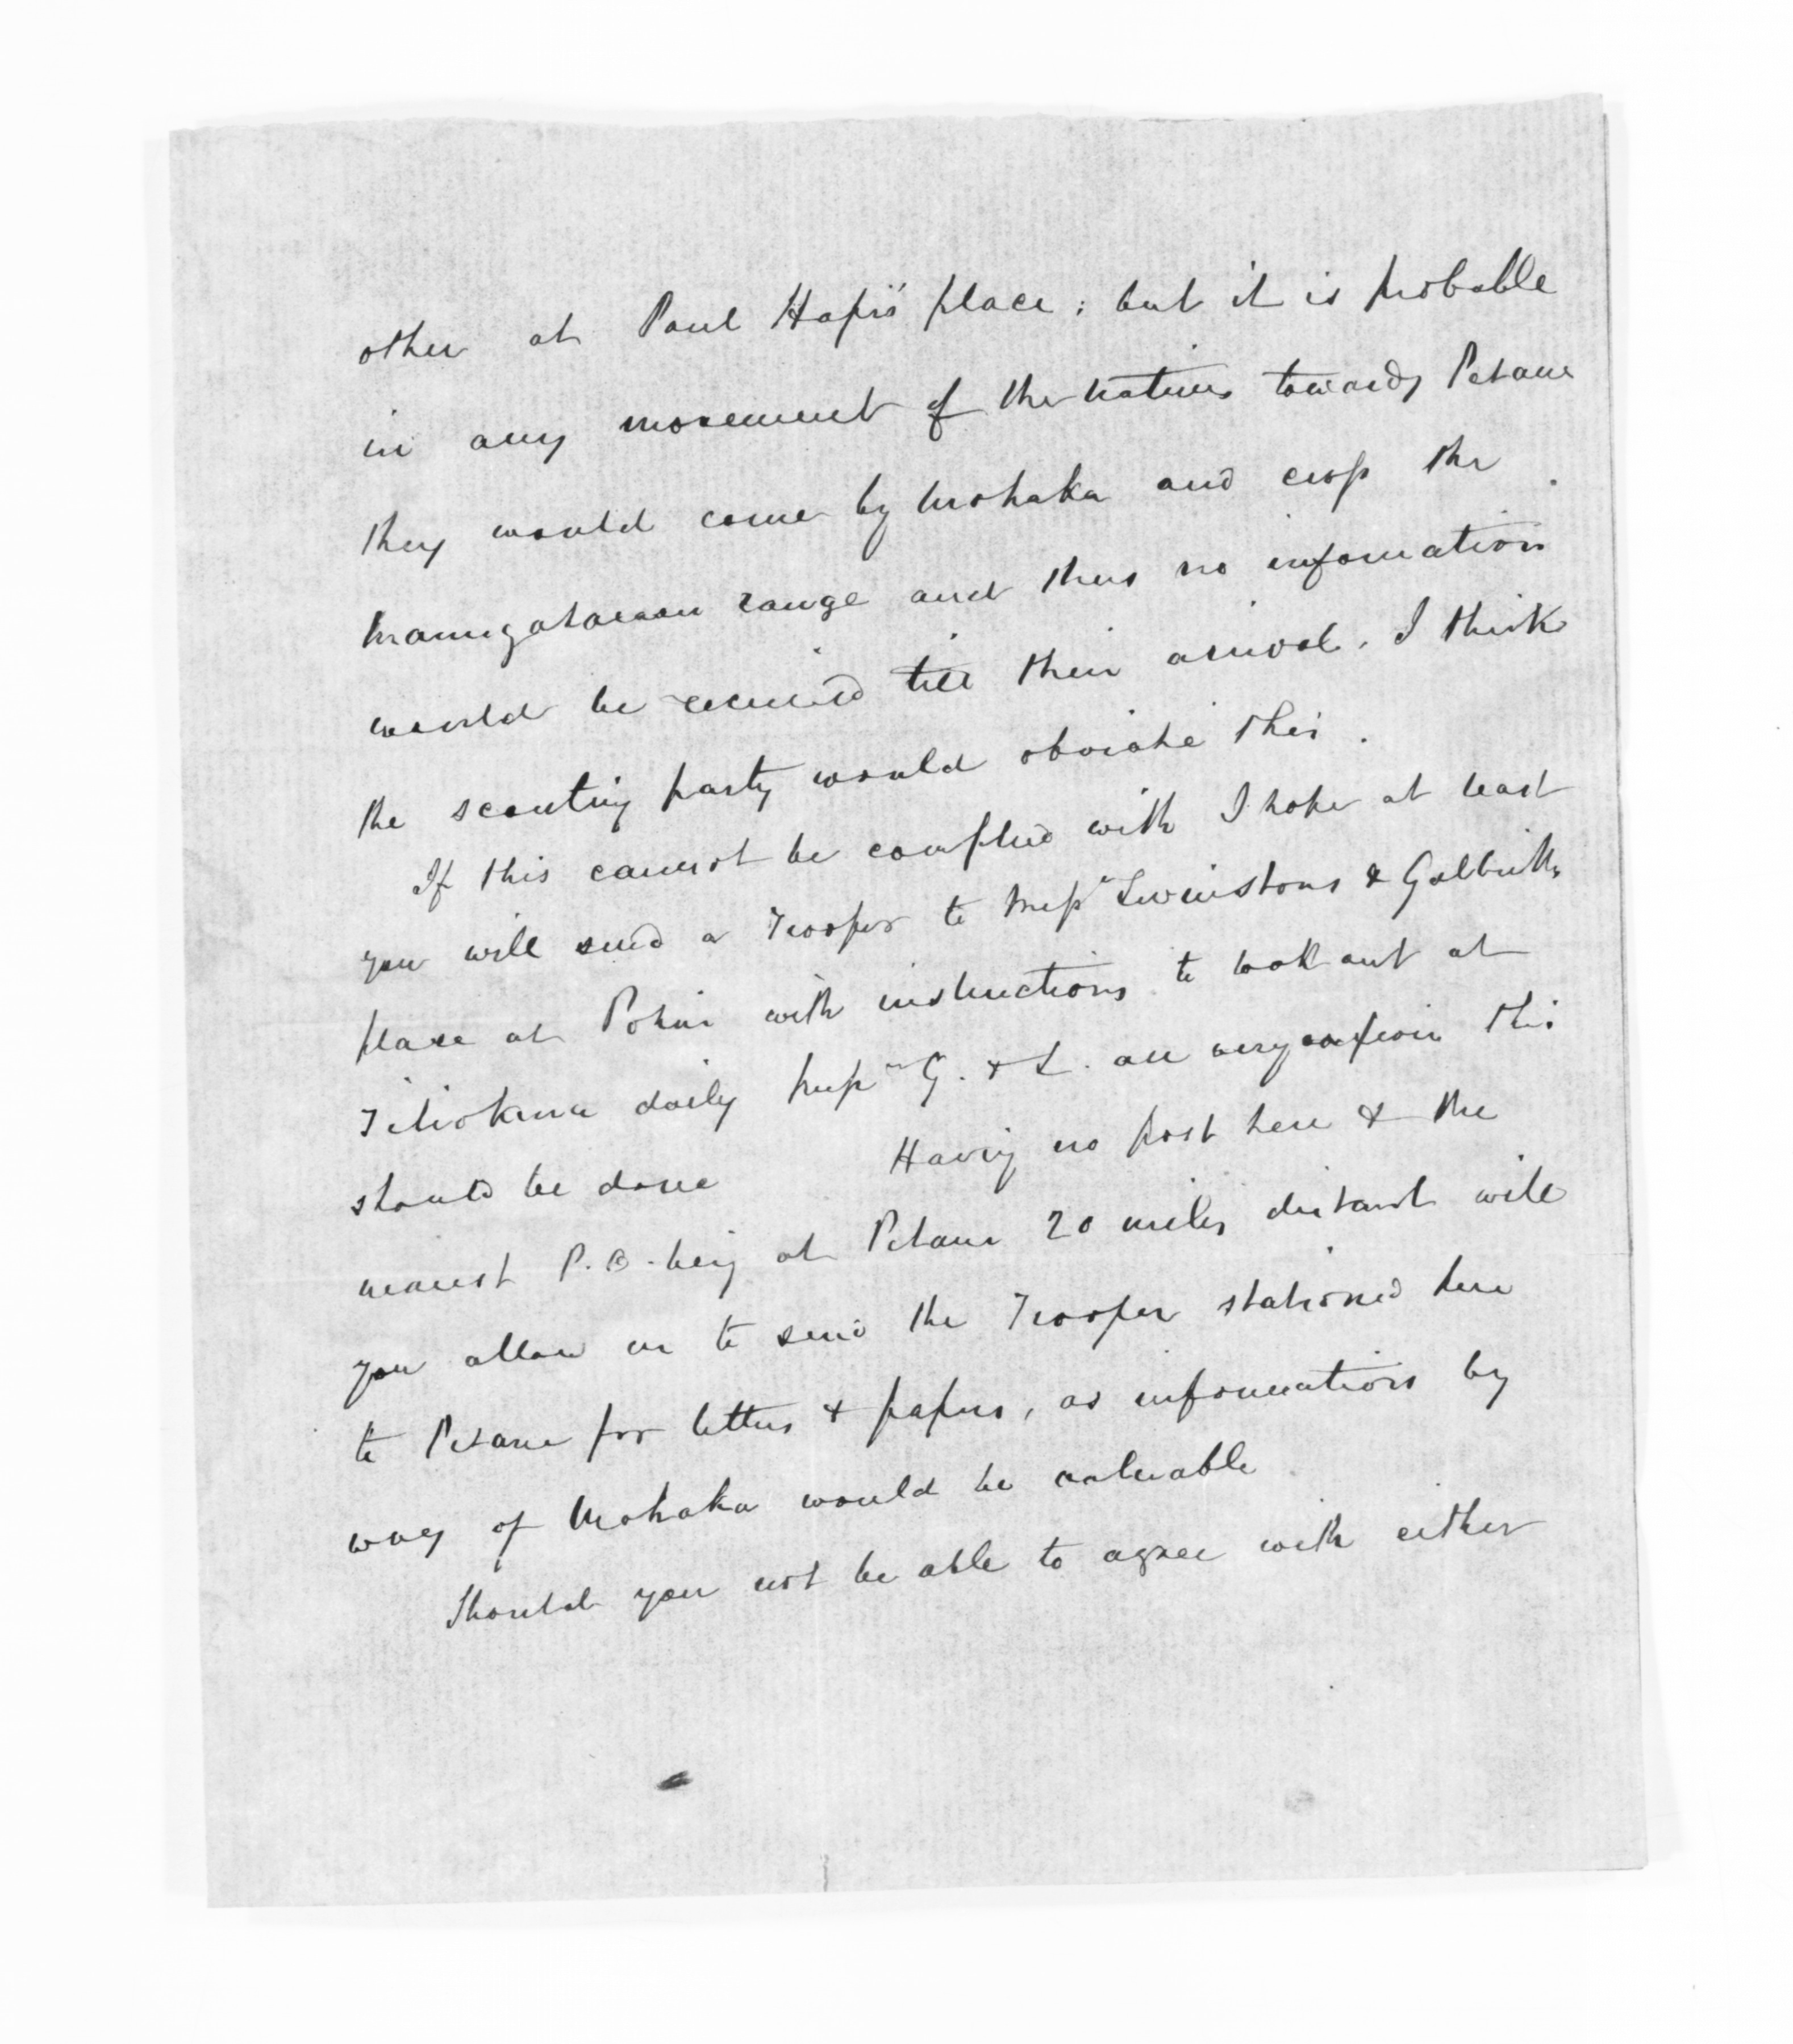 other at Paul Hapi's place; but it is probable
in any movement of the natives towards Petane
they would come by Mohaka and cross the
Maungaharuru range and thus no information
would be received till their arrival. I think
the scouting party would obviate this.
If this cannot be complied with I hope at least
you will send a Trooper to Messrs Livinstons & Galbriths
place at Pohui with instructions to look out at
Titiokura daily Messrs G. & L. are very anxious this
should be done Having no post here & the
nearest P.O. being at Petane 20 miles distant will
you allow us to send the Trooper stationed here
to Petane for letters & papers, as information by
way of Mohaka would be valuable
Should you not be able to agree with either